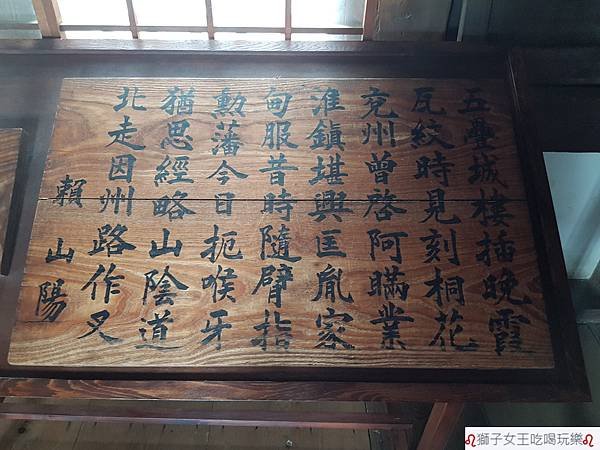 五疊城樓插晚霞
瓦紋時見刻桐花
兗州曾啓阿瞞業
淮鎮堪興匡胤家
甸服昔時隨臂指
勲藩今日扼喉牙
猶思經略山陰道
北走因州路作叉
賴山陽
獅子女王吃喝玩樂